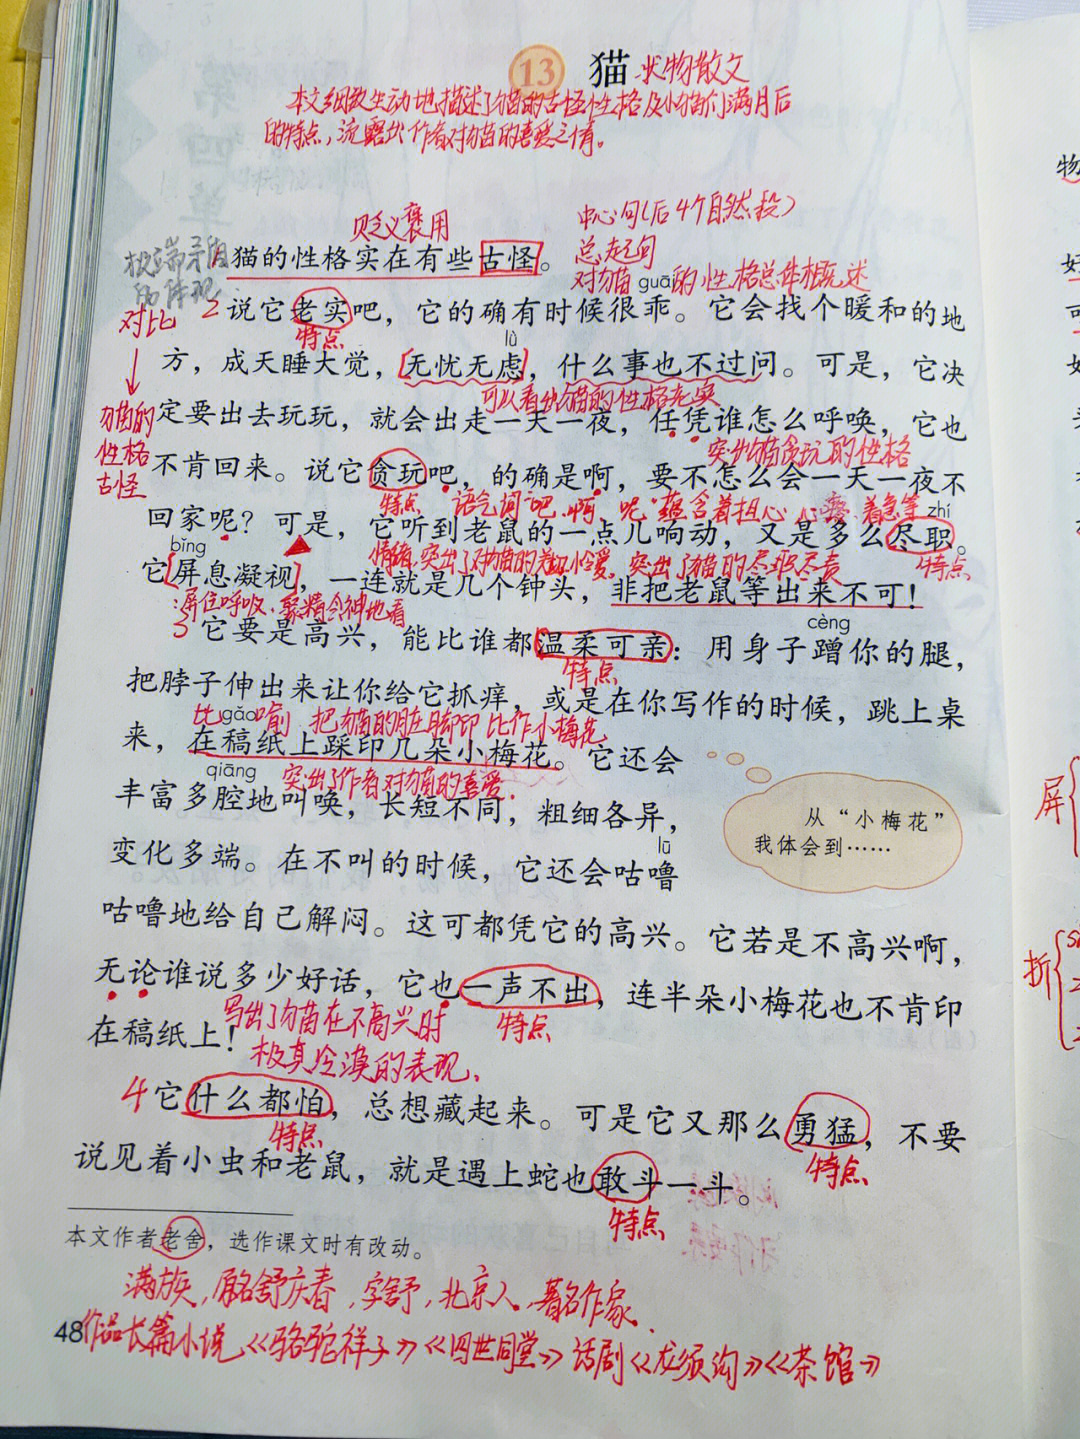 13 猫 状物散文
本文细致生动地描述了猫的古怪性格及小猫们满月后
的特点，流露出作者对猫的喜爱之情。
贬义褒用
中心句(后4个自然段)
总起句
对猫的性格总体概述
极端矛盾
的体现
猫的性格实在有些古怪。
guā
2 说它老实吧，它的确有时候很乖。它会找个暖和的地
对比
特点
lǜ
方，成天睡大觉，无忧无虑，什么事也不过问。可是，它决
可以看出猫的性格老实
猫的
性格
古怪
定要出去玩玩，就会出走一天一夜，任凭谁怎么呼唤，它也
突出猫贪玩的性格
不肯回来。说它贪玩吧，的确是啊，要不怎么会一天一夜不
特点 语气词"吧、啊、呢"蕴含着担心、心疼、着急等
zhí
回家呢？可是，它听到老鼠的一点儿响动，又是多么尽职。
bǐng
情绪，突出了对猫的关切怜爱。突出了猫的尽职尽责
特点
它屏息凝视，一连就是几个钟头，非把老鼠等出来不可！
:屏住呼吸，聚精会神地看
cèng
3 它要是高兴，能比谁都温柔可亲：用身子蹭你的腿，
特点
把脖子伸出来让你给它抓痒，或是在你写作的时候，跳上桌
比喻 把猫的脏脚印比作小梅花
gǎo
来，在稿纸上踩印几朵小梅花。它还会
qiāng
突出了作者对猫的喜爱.
丰富多腔地叫唤，长短不同，粗细各异，
从“小梅花”
我体会到……
lū
变化多端。在不叫的时候，它还会咕噜
咕噜地给自己解闷。这可都凭它的高兴。它若是不高兴啊，
无论谁说多少好话，它也一声不出，连半朵小梅花也不肯印
写出了猫在不高兴时
特点
在稿纸上！
极其冷漠的表现.
4 它什么都怕，总想藏起来。可是它又那么勇猛，不要
特点
特点
说见着小虫和老鼠，就是遇上蛇也敢斗一斗。
特点
本文作者老舍，选作课文时有改动。
满族，原名舒庆春，字舒，北京人，著名作家.
48
作品长篇小说《骆驼祥子》《四世同堂》话剧《龙须沟》《茶馆》
物
好
可
屏
折